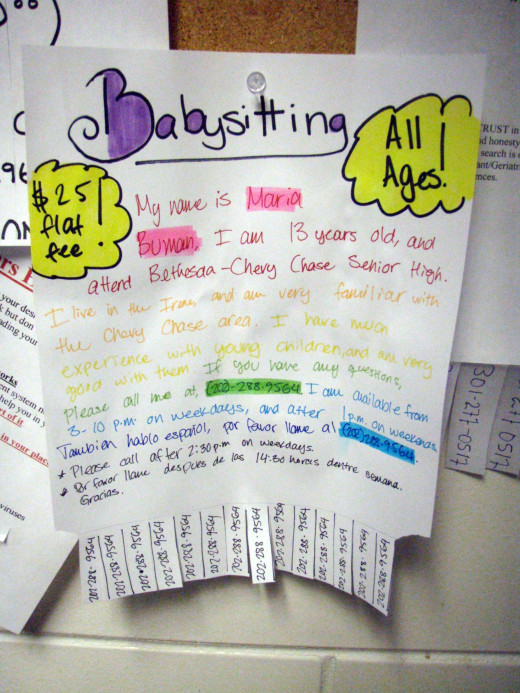 Babysitting
All
Ages!
$25
flat
fee!
My name is Maria
Buman. I am 13 years old, and
attend Bethesda-Chevy Chase Senior High.
I live in the Irene, and am very familiar with
the Chevy Chase area. I have much
experience with young children, and am very
good with them. If you have any questions,
Please call me at, (202-288-9564. I am available from
3-10 p.m. on weekdays, and after 1 p.m. on weekends.
Tambien hablo español, por favor llame al (202)288-9564.
* Please call after 2:30 p.m on weekdays.
* Por favor llame despues de las 14:30 horas dentre semana.
Gracias.
202-288-9564
202-288-9564
202-288-9564
202-288-9564
202-288-9564
202-288-9564
202-288-9564
202-288-9564
202-288-9564
202-288-9564
202-288-9564
202-288-9564
202-288-9564
TRUST in
d honesty
search is
ant/Geriatr
nces.
301-277-0517
0517
96
your des
k but don
ading your
orks
ent system
help you in
of it
in your place
viruses